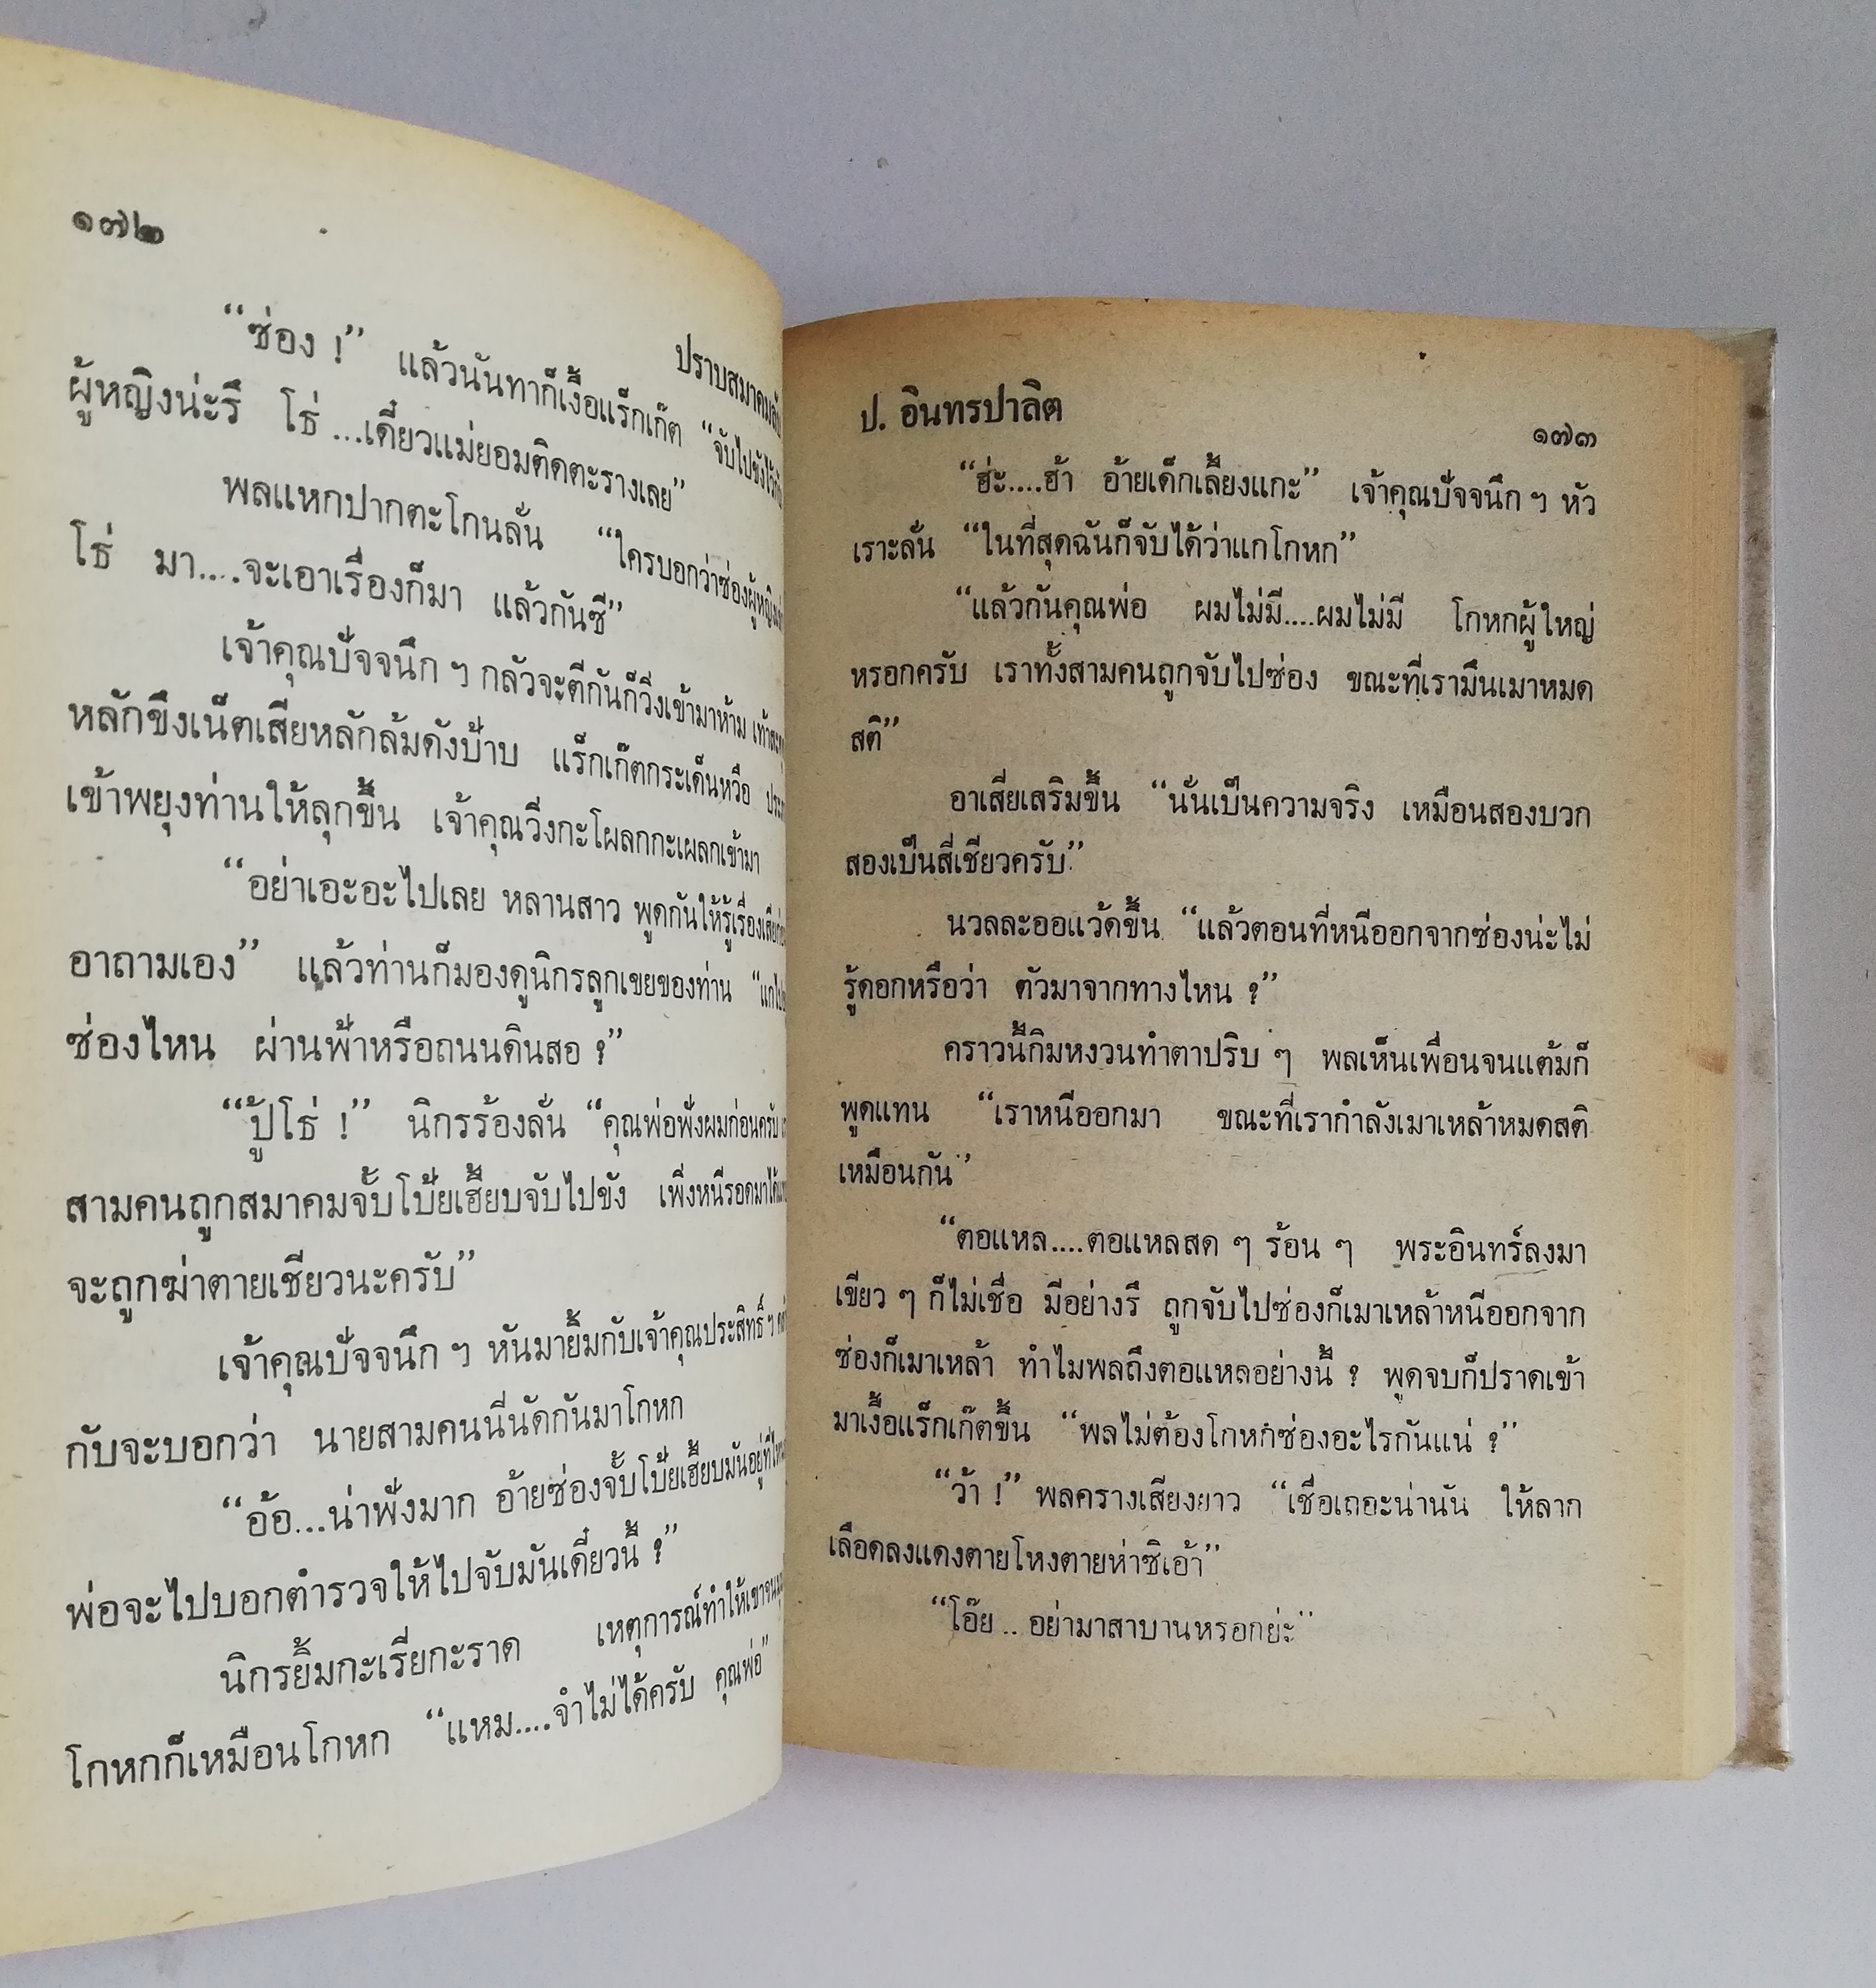 ๑๗๒
ปราบสมาคมลับ
“ซ่อง !” แล้วนันทาก็เงื้อแร็กเก๊ต “จับไปขังไว้กับ
ผู้หญิงน่ะรึ โธ่ ...เดี๋ยวแม่ยอมติดตะรางเลย”
พลแหกปากตะโกนลั่น “ใครบอกว่าซ่องผู้หญิง
โธ่ มา....จะเอาเรื่องก็มา แล้วกันซี”
เจ้าคุณปัจจนึก ฯ กลัวจะตีกันก็วิ่งเข้ามาห้าม
หลักขึงเน็ตเสียหลักล้มดังป้าบ แร็กเก๊ตกระเด็นหวือ
เข้าพยุงท่านให้ลุกขึ้น เจ้าคุณวิ่งกะโผลกกะเผลกเข้ามา
“อย่าเอะอะไปเลย หลานสาว พูดกันให้รู้เรื่องเสีย
อาถามเอง” แล้วท่านก็มองดูนิกรลูกเขยของท่าน
ซ่องไหน ผ่านฟ้าหรือถนนดินสอ ?”
“ปู้โธ่ !” นิกรร้องลั่น “คุณพ่อฟังผมก่อนครับ
สามคนถูกสมาคมจั้บโป้ยเฮี้ยบจับไปขัง เพิ่งหนีรอดมาได้
จะถูกฆ่าตายเชียวนะครับ”
เจ้าคุณปัจจนึก ฯ หันมายิ้มกับเจ้าคุณประสิทธิ์ ฯ
กับจะบอกว่า นายสามคนนี่นัดกันมาโกหก
“อ้อ...น่าฟังมาก อ้ายซ่องจั้บโป้ยเฮี้ยบมันอยู่ที่ไหน
พ่อจะไปบอกตำรวจให้ไปจับมันเดี๋ยวนี้ ?”
นิกรยิ้มกะเรี่ยกะราด เหตุการณ์ทำให้เขาจน
โกหกก็เหมือนโกหก “แหม....จำไม่ได้ครับ คุณพ่อ”
ป. อินทรปาลิต
๑๗๓
“ฮ่ะ....ฮ้า อ้ายเด็กเลี้ยงแกะ” เจ้าคุณปัจจนึก ฯ หัว
เราะลั่น “ในที่สุดฉันก็จับได้ว่าแกโกหก”
“แล้วกันคุณพ่อ ผมไม่มี....ผมไม่มี โกหกผู้ใหญ่
หรอกครับ เราทั้งสามคนถูกจับไปซ่อง ขณะที่เรามึนเมาหมด
สติ”
อาเสี่ยเสริมขึ้น “นั่นเป็นความจริง เหมือนสองบวก
สองเป็นสี่เชียวครับ”
นวลละออแว้ดขึ้น “แล้วตอนที่หนีออกจากซ่องน่ะไม่
รู้ดอกหรือว่า ตัวมาจากทางไหน ?”
คราวนี้กิมหงวนทำตาปริบ ๆ พลเห็นเพื่อนจนแต้มก็
พูดแทน “เราหนีออกมา ขณะที่เรากำลังเมาเหล้าหมดสติ
เหมือนกัน”
“ตอแหล....ตอแหลสด ๆ ร้อน ๆ พระอินทร์ลงมา
เขียว ๆ ก็ไม่เชื่อ มีอย่างรึ ถูกจับไปซ่องก็เมาเหล้าหนีออกจาก
ซ่องก็เมาเหล้า ทำไมพลถึงตอแหลอย่างนี้ ? พูดจบก็ปราดเข้า
มาเงื้อแร็กเก๊ตขึ้น “พลไม่ต้องโกหกซ่องอะไรกันแน่ ?”
“ว้า !” พลครางเสียงยาว “เชื่อเถอะน่านัน ให้ลาก
เลือดลงแดงตายโหงตายห่าซิเอ้า”
“โอ๊ย .. อย่ามาสาบานหรอกย่ะ”